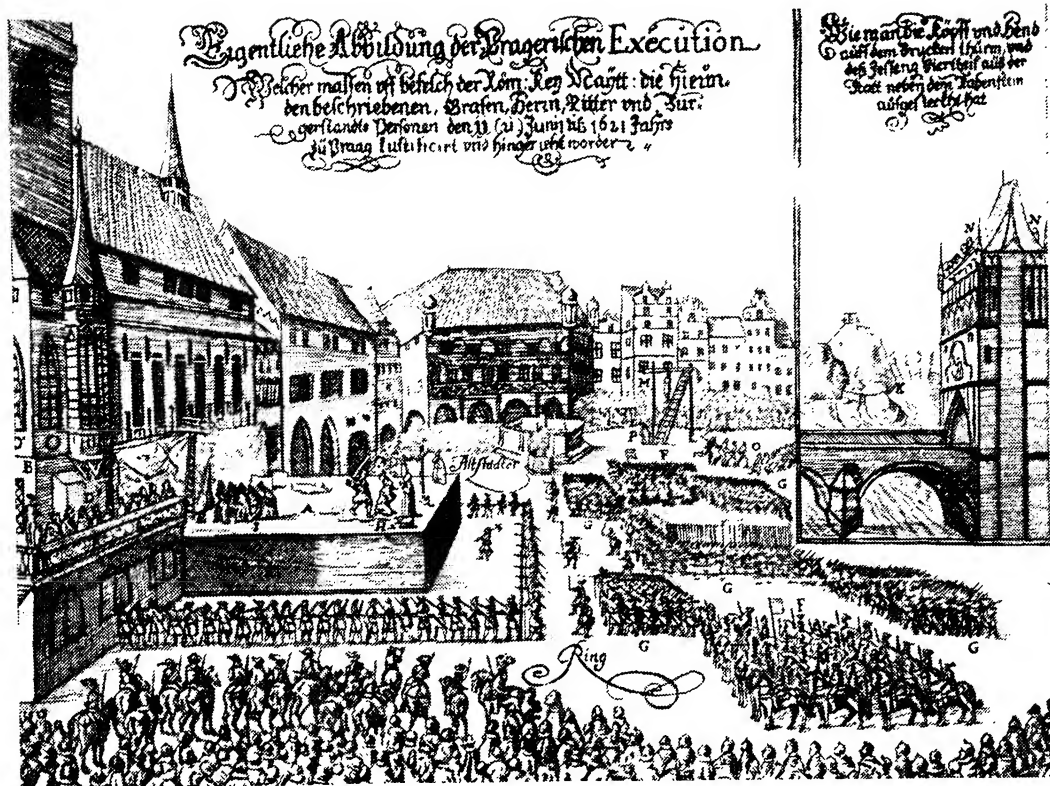 Eigentliche Abbildung der Pragerischen Execution
Welcher massen uf befelch der Röm: Key Maytt: die hierin
den beschriebenen, Grafen, Herrn, Ritter vnd Bur:
gerstandts Personen den 11 (21) Junij diß 1621 Jahrs
zu Praag Justificirt vnd hingericht worden
Wie man die Köpff vnd Hend
auff dem Brucken thurn, vnd
deß Viertheil auß der
Statt neben dem Rabenstein
auffgestecket hat
N
N
K
M
P
F
O
G
B
D
A
Altstädter
G
G
F
G
G
Ring